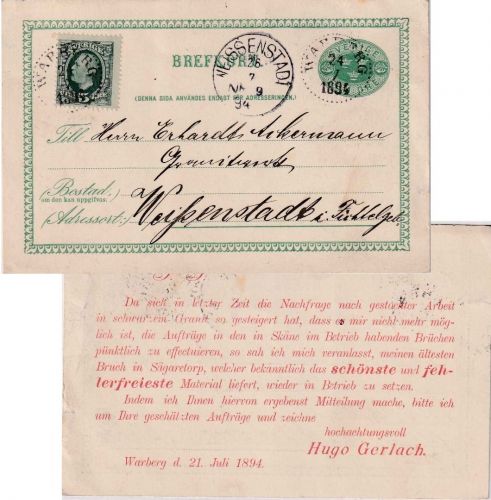 BREFKORT
SVERIGE
WARBERG
24
7
1894
WEISSENSTADT
26
7
NM 9
94
(DENNA SIDA ANVÄNDES ENDAST FÖR ADRESSERINGEN.)
Till Herrn Erhardt Ackermann
Granitwerk
(Bostad.)
om den kan uppgifvas.
(Adressort:) Weißenstadt i. Fichtelgeb
Da sich in letzter Zeit die Nachfrage nach gestockter Arbeit
in schwarzem Granit so gesteigert hat, dass es mir nicht mehr mög-
lich ist, die Aufträge in den in Skåne im Betrieb habenden Brüchen
pünktlich zu effectuieren, so sah ich mich veranlasst, meinen ältesten
Bruch in Sägaretorp, welcher bekanntlich das schönste und feh-
lerfreieste Material liefert, wieder in Betrieb zu setzen.
Indem ich Ihnen hiervon ergebenst Mitteilung mache, bitte ich
um Ihre geschätzten Aufträge und zeichne
hochachtungsvoll
Hugo Gerlach.
Warberg d. 21. Juli 1894.